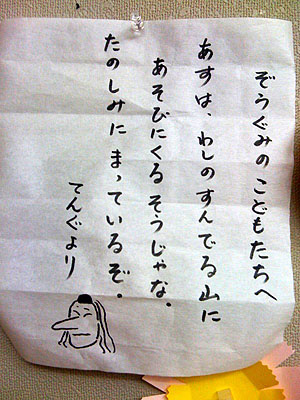 ぞうぐみのこどもたちへ
あすは、わしのすんでる山に
あそびにくるそうじゃな。
たのしみにまっているぞ。
てんぐより